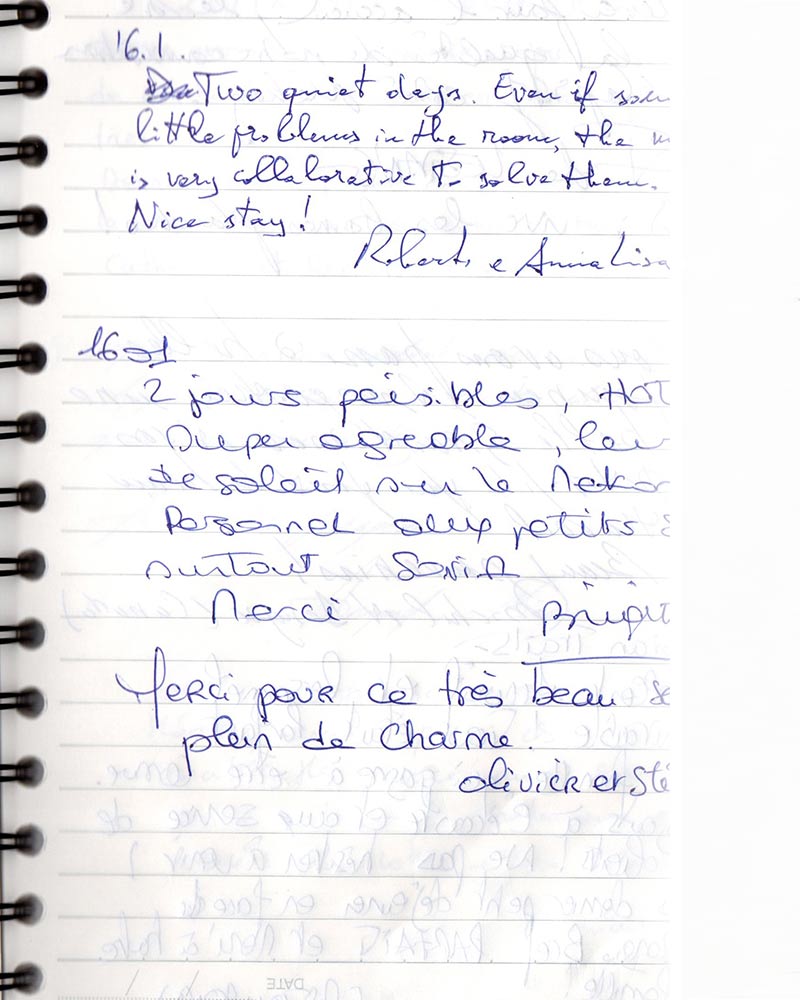 16.1.
Two quiet days. Even if som
little problems in the room, the
is very collaborative to solve them.
Nice stay!
Roberto e Anna Lisa
16 01
2 jours péisibles, HOT
super agreable, leu
de soleil sur le Meko
Personnel aux petits
surtout SONIA
Merci Brigit
Merci pour ce très beau se
plein de charme.
olivier et Sté
DATE